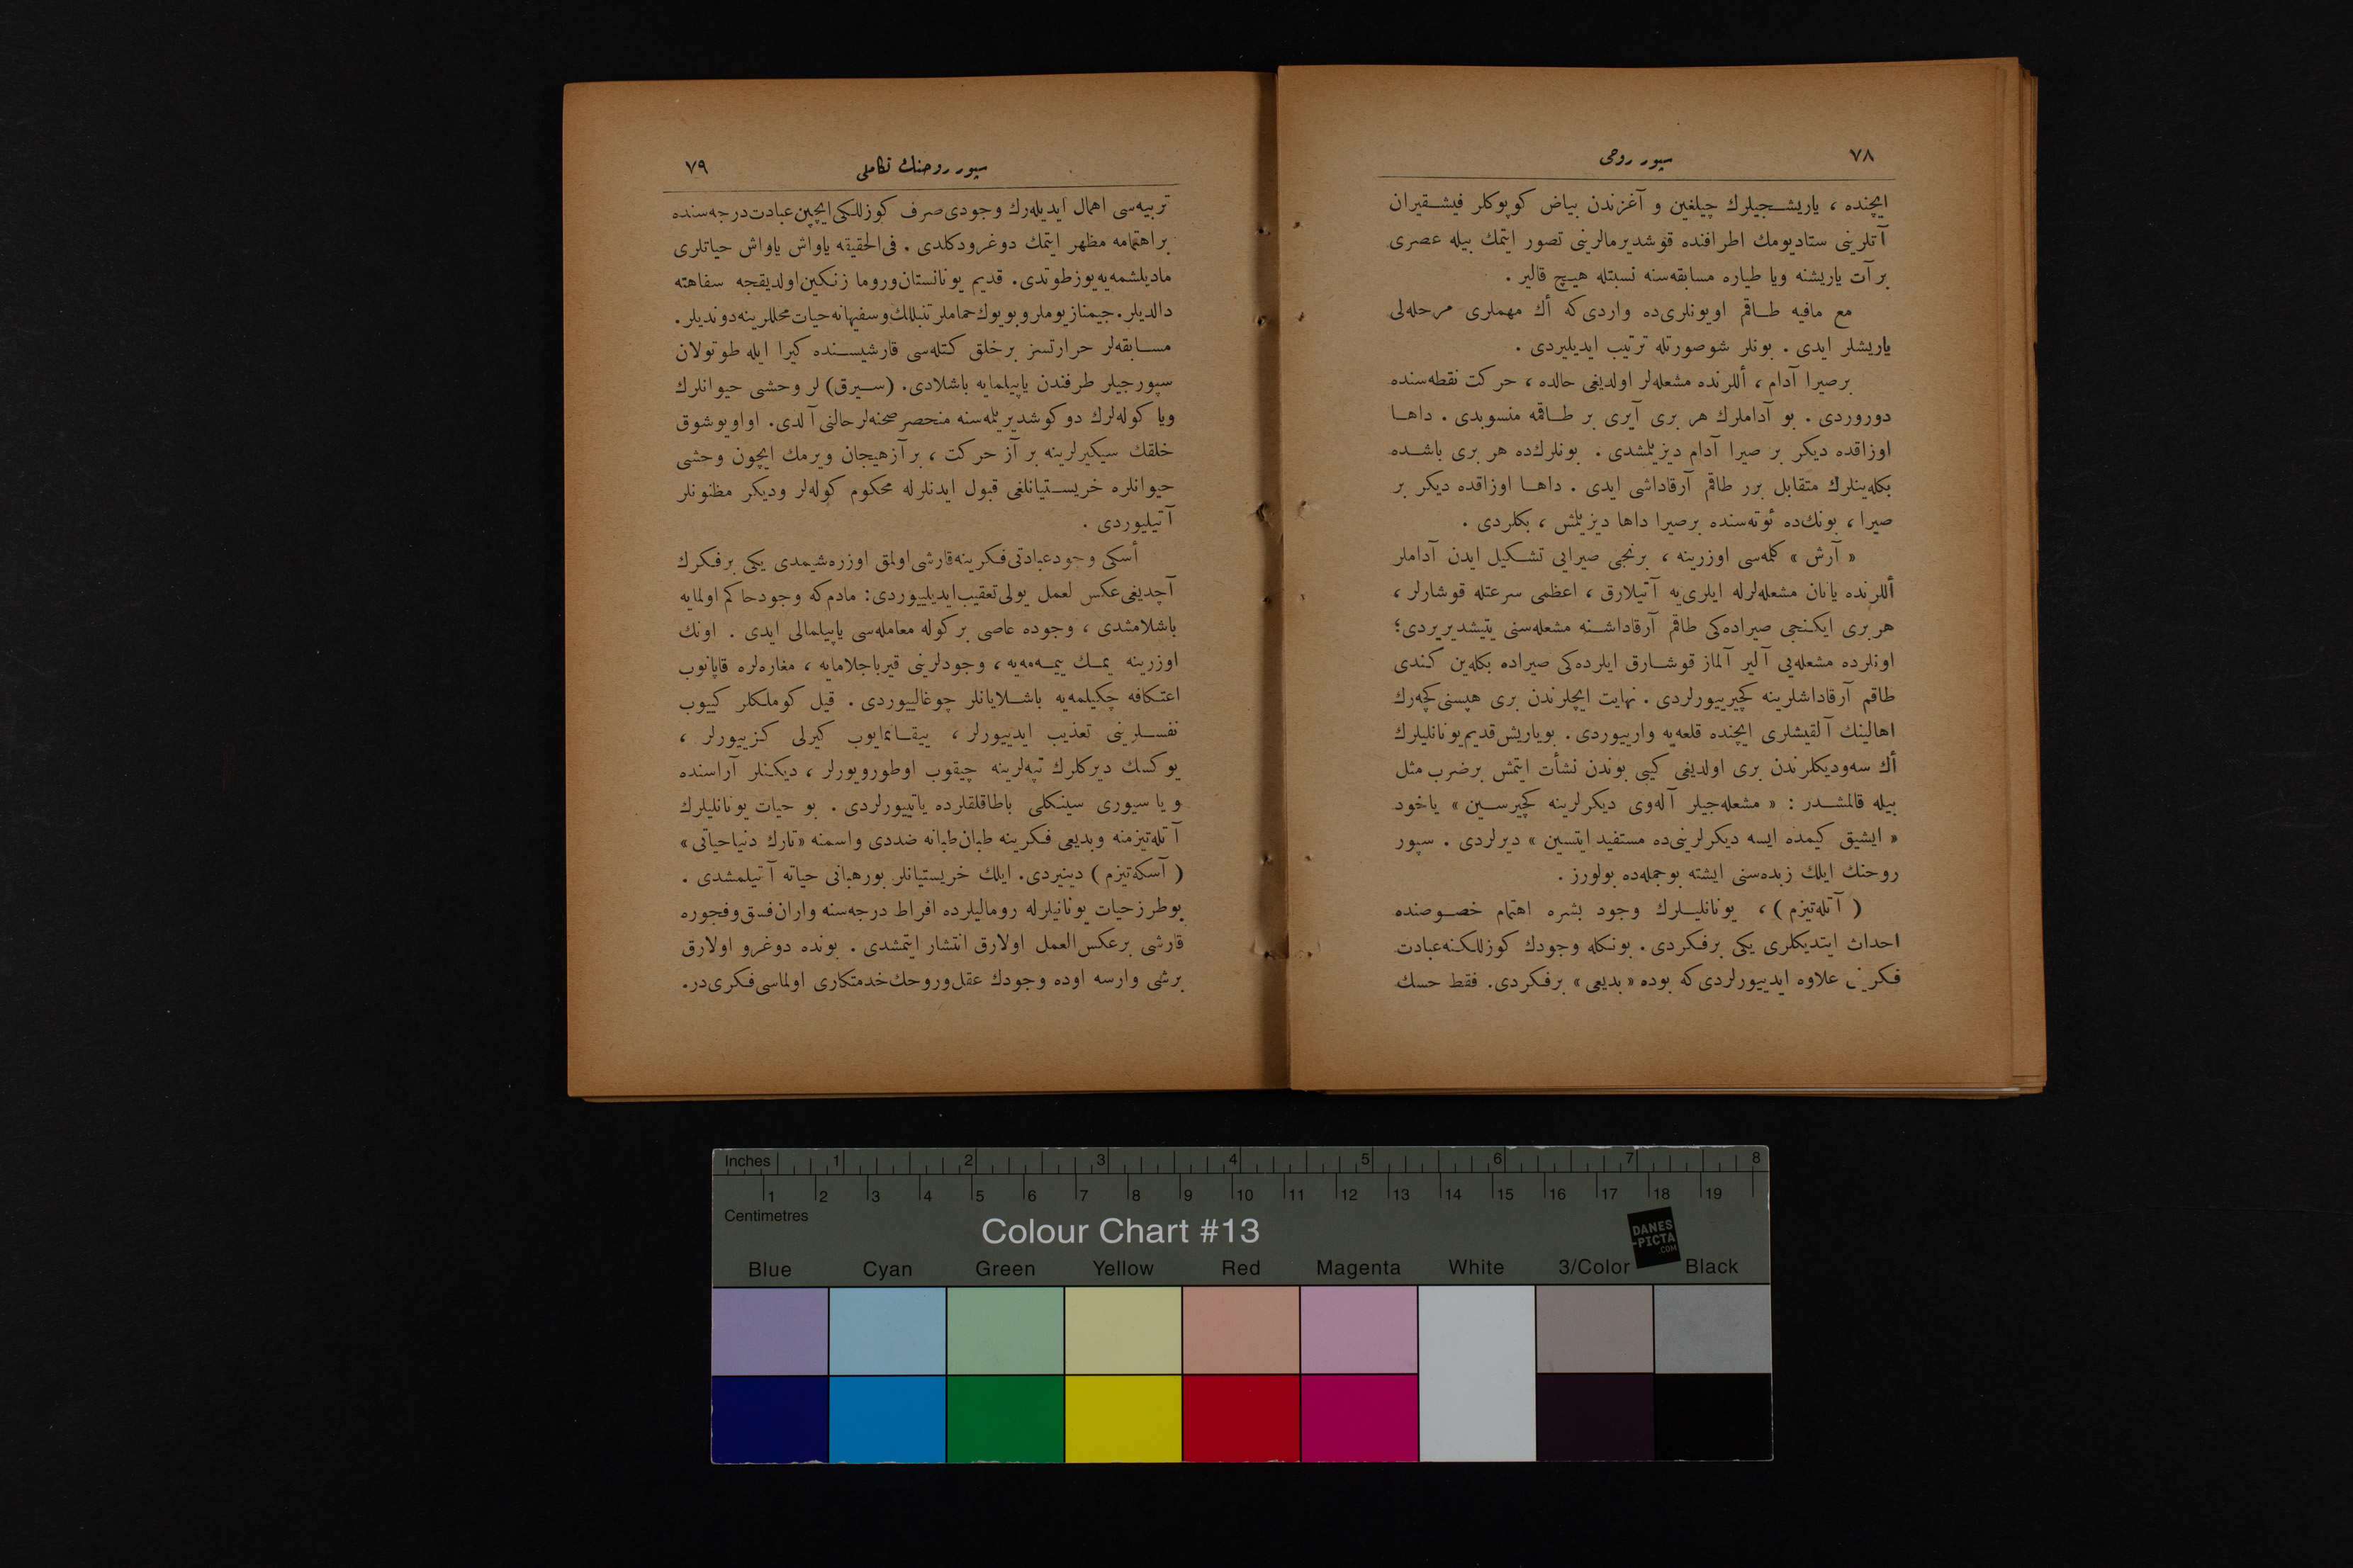 ٧٨
سپور روحی
ایچنده ، یاریشـجیلرك چیلغین و آغزندن بیاض كوپوكلر فیشـقیران
آتلرینی ستادیومك اطرافنده قوشدیرمالرینی تصور ایتمك بیله عصری
بر آت یاریشنه ویا طیاره مسابقه‌سنه نسبتله هیـچ قالیر .
مع مافیه طـاقم اویونلری‌ده واردی‌كه أك مهملری مرحله‌لی
یاریشلر ایدی . بونلر شوصورتله ترتیب ایدیلیردی .
برصیرا آدام ، أللرنده مشعله‌لر اولدیغی حالده ، حركت نقطه‌سنده
دوروردی . بو آداملرك هر بری آیری بر طـاقمه منسوبدی . داهـا
اوزاقده دیكر بر صیرا آدام دیزیلمشدی . بونلرك‌ده هر بری باشـده
بكله‌ینلرك متقابل برر طاقم آرقاداشی ایدی . داهـا اوزاقده دیكر بر
صیرا ، بونك‌ده ئوته‌سنده برصیرا داها دیزیلمش ، بكلردی .
« آرش » كله‌سی اوزرینه ، برنجی صیرایی تشـكیل ایدن آداملر
أللرنده یانان مشعله‌لرله ایلری‌یه آتیلارق ، اعظمی سرعتله قوشارلر ،
هربری ایكـنجی صیراده‌كی طاقم آرقاداشـنه مشعله‌سنی یتیشدیریردی؛
اونلرده مشعله‌یی آلیر آلماز قوشـارق ایلرده‌كی صیراده بكله‌ین كـندی
طاقم آرقاداشلرینه كچیرییورلردی . نهایت ایچلرندن بری هپسنی كچه‌رك
اهالینك آلقیشلری ایچنده قلعه‌یه وارییوردی . بویاریش قدیم یونانلیلرك
أك سه‌ودیكلرندن بری اولدیغی كیبی بوندن نشأت ایتمش برضرب مثل
بیله قالمشـدر : « مشعله‌جیلر آله‌وی دیكرلرینه كچیرسـین » یاخود
« ایشیق كیمده ایسه دیكرلرینی‌ده مستفید ایتسین » دیرلردی . سپور
روحنك ایلك زبده‌سنی ایشته بوجمله‌ده بولورز .
( آتله‌تیزم ) ، یونانلیـلرك وجود بشره اهتمام خصـوصنده
احداث ایتدیكلری یكی برفكردی . بونكله وجودك كوزللكنه عبادت
فـكرینی علاوه ایدییورلردی‌كه بوده « بدیعی » برفكردی. فقط حسك
٧٩
سپور روحنك تكاملی
تربیه‌سی اهمال ایدیله‌رك وجودی صرف كوزللكی ایچین عبادت درجه‌سنده
براهتمامه مظهر ایتمك دوغرودكلدی . فی‌الحقیقه یاواش یاواش حیاتلری
مادیلشمه‌یه یوزطوتدی. قدیم یونانستان‌وروما زنكین‌اولدیقجه سفاهته
دالدیلر. جیمنازیوملر و بویوك حماملر تنبللك‌وسفیهانه حیات محللرینه دوندیلر.
مسـابقه‌لر حرارتسز برخلق كتله‌سی قارشیسـنده كیرا ایله طوتولان
سپورجیلر طرفندن یاپیلمایه باشلادی. (سـیرق) لر وحشی حیوانلرك
ویا كوله‌لرك دوكوشدیریلمه‌سنه منحصر صحنه‌لر حالنی آلدی. او اویوشوق
خلقك سیكیرلرینه بر آز حركت ، بر آزهیجان ویرمك ایچون وحشی
حیوانلره خریسـتیانلغی قبول ایدنلرله محكوم كوله‌لر ودیكر مظنونلر
آتیلیوردی .
أسكی وجودعبادتی فـكرینه قارشی اولمق اوزره شیمدی یكی برفـكرك
آچدیغی عكس لعمل یولی تعقیب ایدیلییوردی: مادم‌كه وجود حاكم اولمایه
باشلامشدی ، وجوده عاصی بركوله معامله‌سی یاپیلمالی ایدی . اونك
اوزرینه یمـك ییمـه‌مه‌یه ، وجودلرینی قیرباجلامایه ، مغاره‌لره قاپانوب
اعتـكافه چكیلمه‌یه باشـلایانلر چوغالییوردی . قیل كوملكلر كییوب
نفسـلرینی تعذیب ایدییورلر ، ییقـانمایوب كیرلی كزییورلر ،
یوكسك دیركلرك تپه‌لرینه چیقوب اوطورویورلر ، دیكـنلر آراسنده
و یا سیوری سینكلی باطاقلقلرده یاتییورلردی . بو حیات یونانلیلرك
آتله‌تیزمنه وبدیعی فـكرینه طبان‌طبانه ضددی واسمنه «تارك دنیاحیاتی»
( آسكه‌تیزم ) دینیردی. ایلك خریستیانلر بورهبانی حیاته آتیلمشدی .
بوطرز حیات یونانیلرله رومالیلرده افراط درجه‌سنه واران‌فسق‌وفجوره
قارشی برعكس‌العمل اولارق انتشار ایتمشدی . بونده دوغرو اولارق
برشی وارسه اوده وجودك عقل‌وروحك‌خدمتكاری اولماسی‌فكری‌در.
Inches 1 2 3 4 5 6 7 8
1 2 3 4 5 6 7 8 9 10 11 12 13 14 15 16 17 18 19
Centimetres
Colour Chart #13
DANES
-PICTA
.COM
Blue Cyan Green Yellow Red Magenta White 3/Color Black